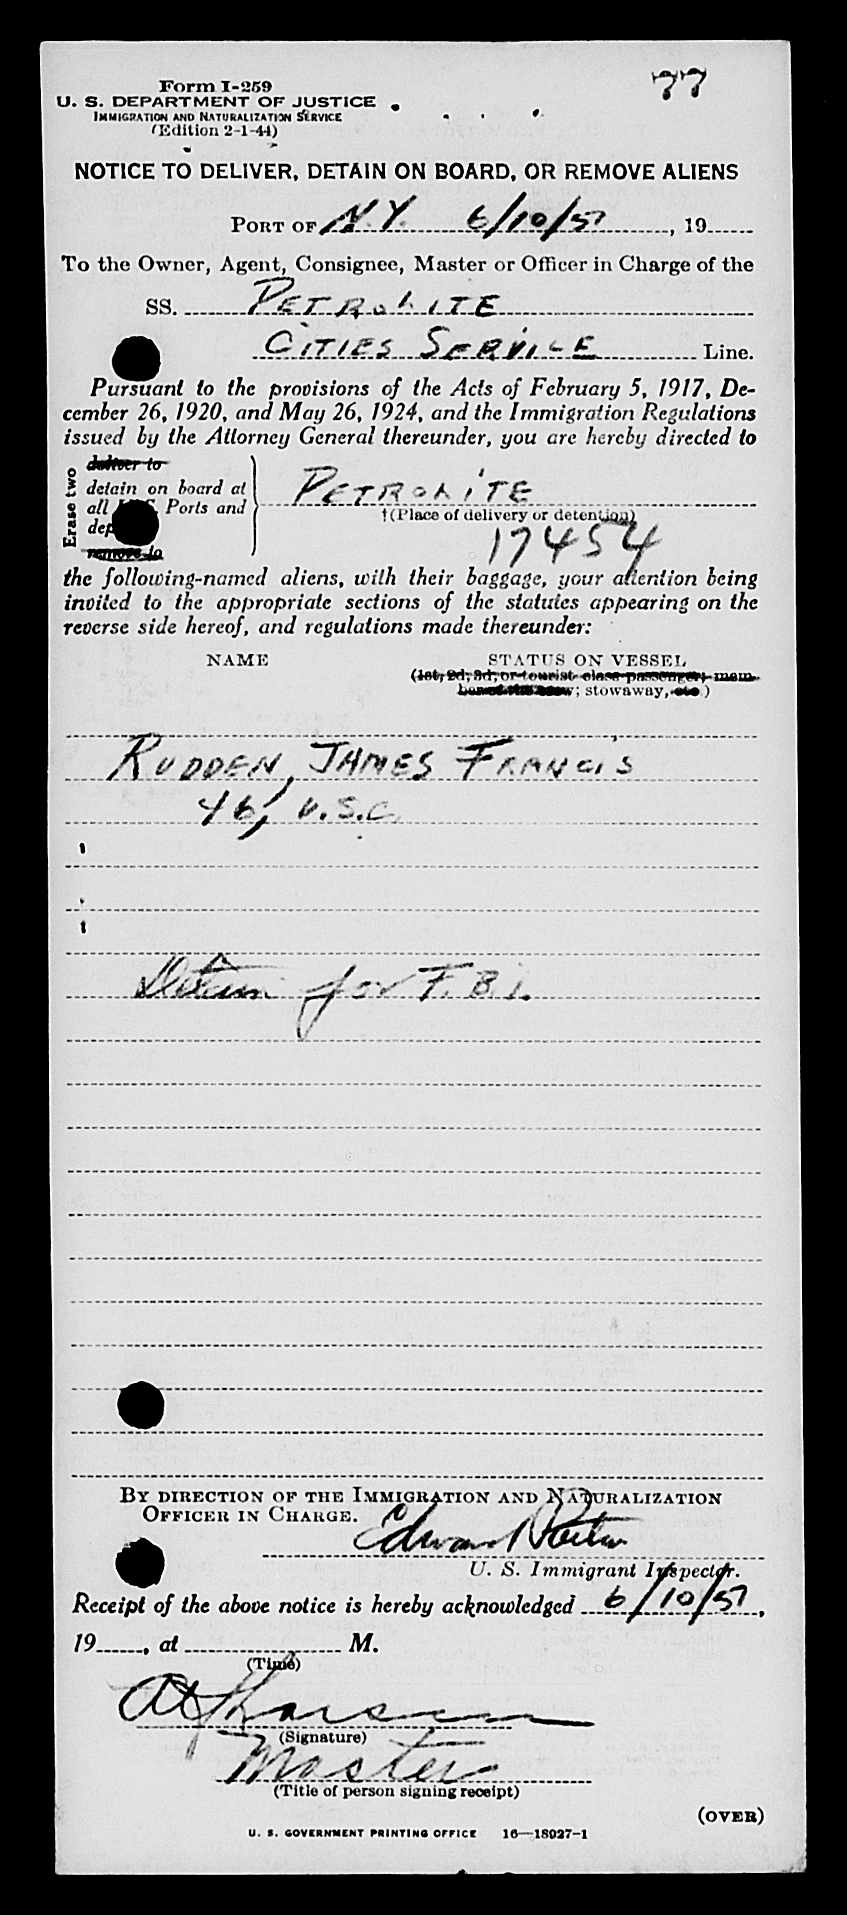 77
Form I-259
U. S. DEPARTMENT OF JUSTICE
IMMIGRATION AND NATURALIZATION SERVICE
(Edition 2-1-44)
NOTICE TO DELIVER, DETAIN ON BOARD, OR REMOVE ALIENS
PORT OF N.Y. 6/10/57, 19
To the Owner, Agent, Consignee, Master or Officer in Charge of the
SS. PETROLITE
CITIES SERVICE Line.
Pursuant to the provisions of the Acts of February 5, 1917, De-
cember 26, 1920, and May 26, 1924, and the Immigration Regulations
issued by the Attorney General thereunder, you are hereby directed to
Erase two
deliver to
detain on board at
all Ports and
remove to
PETROLITE
†(Place of delivery or detention)
17454
the following-named aliens, with their baggage, your attention being
invited to the appropriate sections of the statutes appearing on the
reverse side hereof, and regulations made thereunder:
NAME STATUS ON VESSEL
(1st, 2d, 3d, or tourist class passenger; mem-
ber of the crew; stowaway, etc.)
RUDDEN, JAMES FRANCIS
46, U.S.C.
Detain for F.B.I.
BY DIRECTION OF THE IMMIGRATION AND NATURALIZATION
OFFICER IN CHARGE.
Edward
U. S. Immigrant Inspector.
Receipt of the above notice is hereby acknowledged 6/10/57,
19, at M.
(Time)
(Signature)
Master
(Title of person signing receipt)
(OVER)
U. S. GOVERNMENT PRINTING OFFICE 16—18927-1